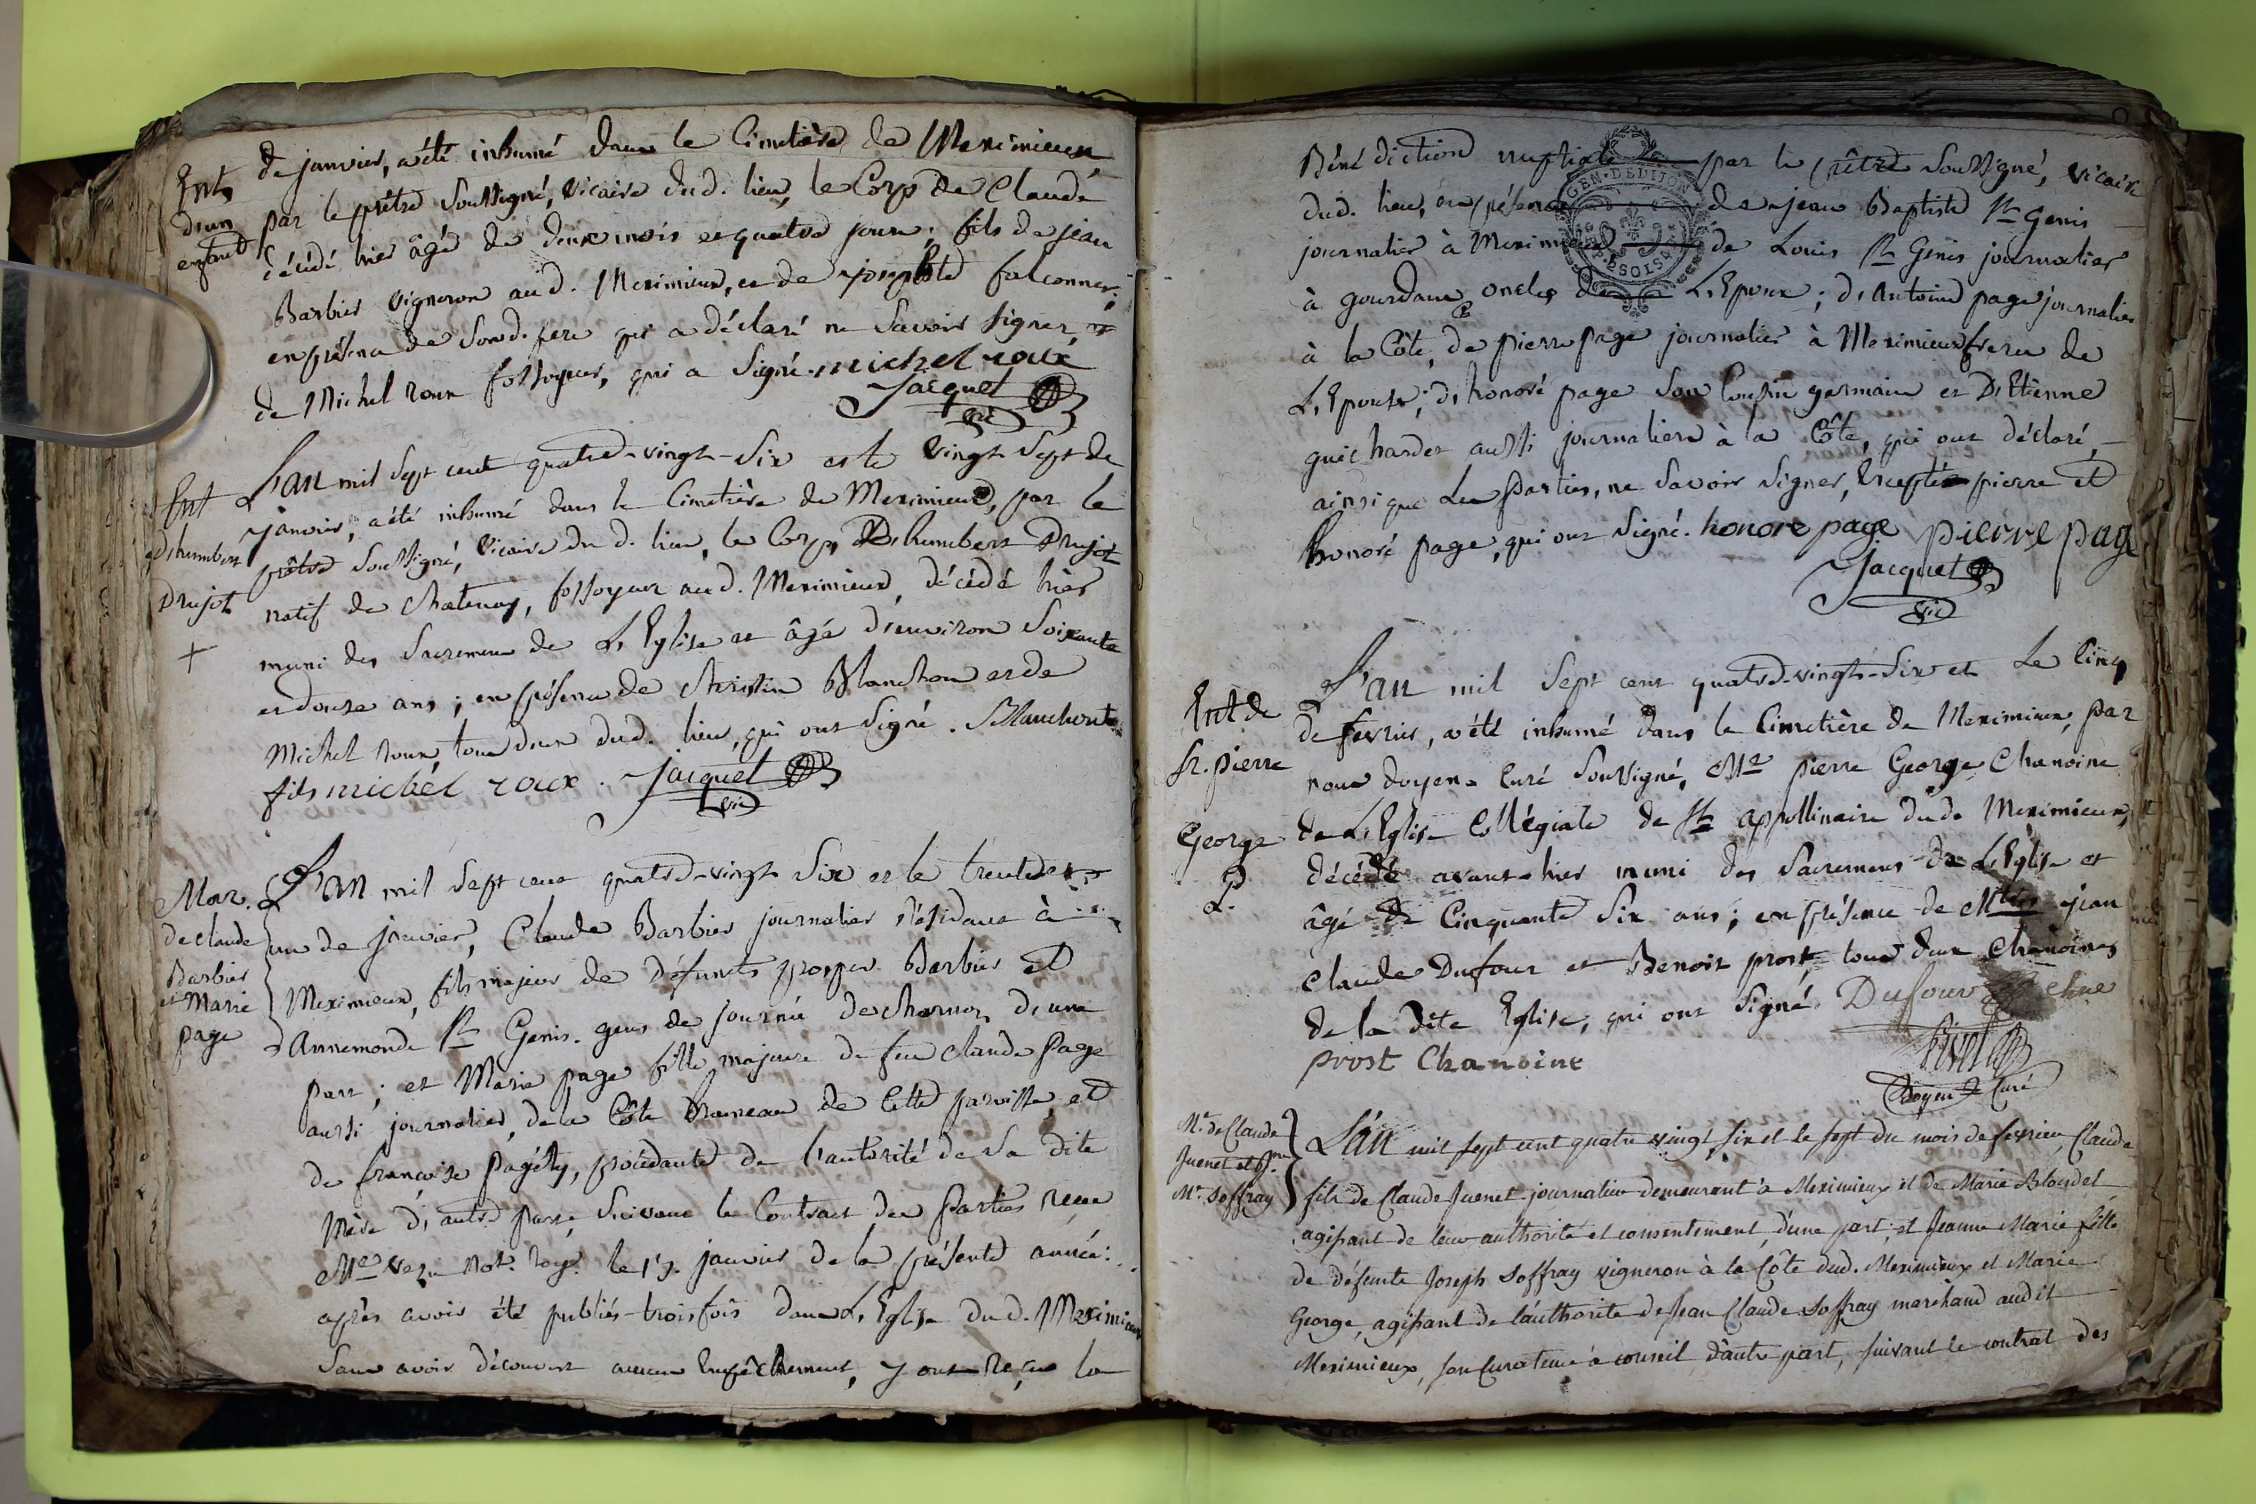 Ent
d'un
enfant
de janvier, a été inhumé dans le Cimetière de Meximieux
par le prêtre soussigné, vicaire dud. lieu, le Corps de Claude
décédé hier âgé de deux mois et quatre jours, fils de jean
Barbier vigneron aud. Meximieux, et de josephte falconnet;
en présence de sond. pere qui a déclaré ne savoir signer, et
de Michel roux fossoyeur, qui a signé. michel roux
Jacquet
vic
Ent
d'humbert
Drujot
+
L'an mil sept cent quatre-vingt-six et le vingt sept de
janvier, a été inhumé dans le Cimetière de Meximieux, par le
prêtre soussigné, vicaire du d. lieu, le Corps D'humbert Drujot
natif de Chatenay, fossoyeur aud. Meximieux, décédé hier
muni des Sacremens de L'Eglise et âgé d'environ soixante
et douze ans; en présence de Christin Blanchon et de
Michel roux, tous deux dud. lieu, qui ont signé. Blanchont
fils michel roux. Jacquet
vic
Mar.
de claude
Barbier
et Marie
page
L'an mil sept cent quatre-vingt six et le trente et
un de janvier, Claude Barbier journalier résidant à
Meximieux, fils majeur de défunts Barbier et
d'Annemonde St Genis, gens de journée de charnoz, d'une
part; et Marie page fille majeure de feu claude Page
aussi journalier, de la Côte hameau de cette paroisse, et
de françoise Pagéty, procédante de l'autorité de sa dite
Mère d'autre part, suivant le Contract des parties reçu
Me not. roy. le 15. janvier de la présente année:
après avoir été publiés trois fois dans L'Eglise dud. Meximieux
sans avoir découvert aucun Empêchement, y ont reçu la
Bénédiction nuptiale par le prêtre soussigné, vicaire
dud. lieu, en présence de jean Baptiste St Genis
journalier à Meximieux de Louis St Genis journalier
à gourdans, oncles de L'Epoux; d'Antoine page journalier
à la Côte, de pierre page journalier à Meximieux freres de
L'Epouse; d'honoré page son Cousin germain et D'Etienne
guichardet aussi journaliers à la Côte, qui ont déclaré,
ainsi que Les parties, ne savoir signer, Excepté pierre et
honoré page, qui ont signé. honore page pierre pag
Jacquet
vic
GEN. DE DIJON
Ent de
Sr. pierre
George
L'an mil sept cent quatre-vingt-six et Le Cinq
de fevrier, a été inhumé dans le Cimetière de Meximieux, par
nous doyen Curé soussigné, Mre pierre George Chanoine
de L'Eglise Collégiale de St appollinaire dud. Meximieux,
décédé avant-hier muni des Sacremens de L'Eglise et
âgé de Cinquante six ans; en présence de Mres jean
Claude Dufour et Benoit prost tous deux Chanoines
de la dite Eglise, qui ont signé. Dufour chne
prost Chanoine
doyen Curé
Mr. de Claude
Juenet et Jne
Me. Soffray
L'an mil sept cent quatre vingt six et le sept du mois de fevrier, Claude
fils de Claude Juenet journalier demeurant à Meximieux et de Marie Blondel
agissant de leur authorité et consentement, d'une part; et Jeanne Marie fille
de défunte Joseph Soffray vigneron à la Côte dud. Meximieux et Marie
George, agissant de l'authorité de Jean Claude Soffray marchand audit
Meximieux, son Curateur à conseil d'autre part, suivant le contrat des